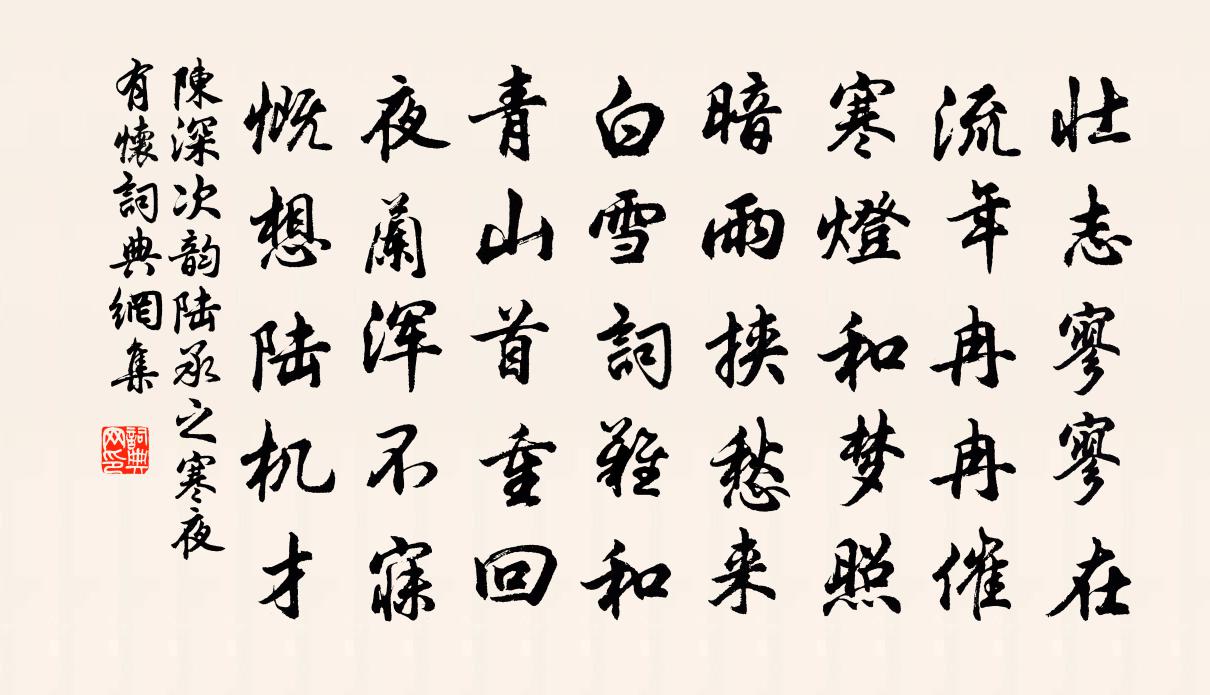 壮志寥寥在
流年冉冉催
寒燈和梦照
暗雨挟愁来
白雪詞難和
青山首重回
夜闌浑不寐
慨想陆机才
陳深次韵陆承之寒夜
有懷詞典網集
詞典网印